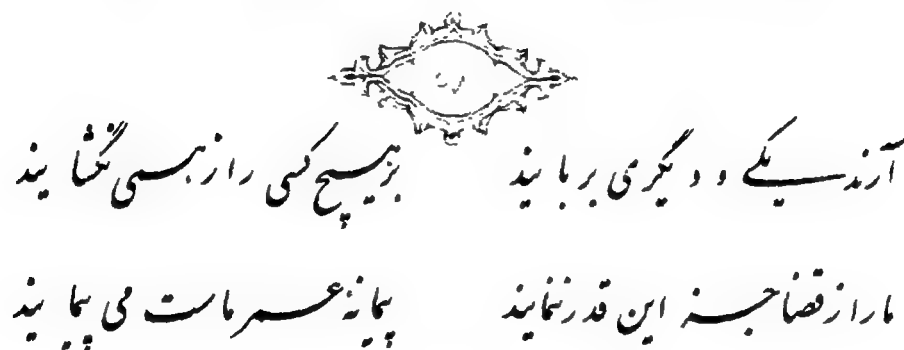 ۵۷
آرند یکے و دیگری بربایند    بر هیچ کسی راز همی نگشایند
ما را ز قضا جز این قدر ننمایند    پیمانهٔ عمر ماست می پیمایند